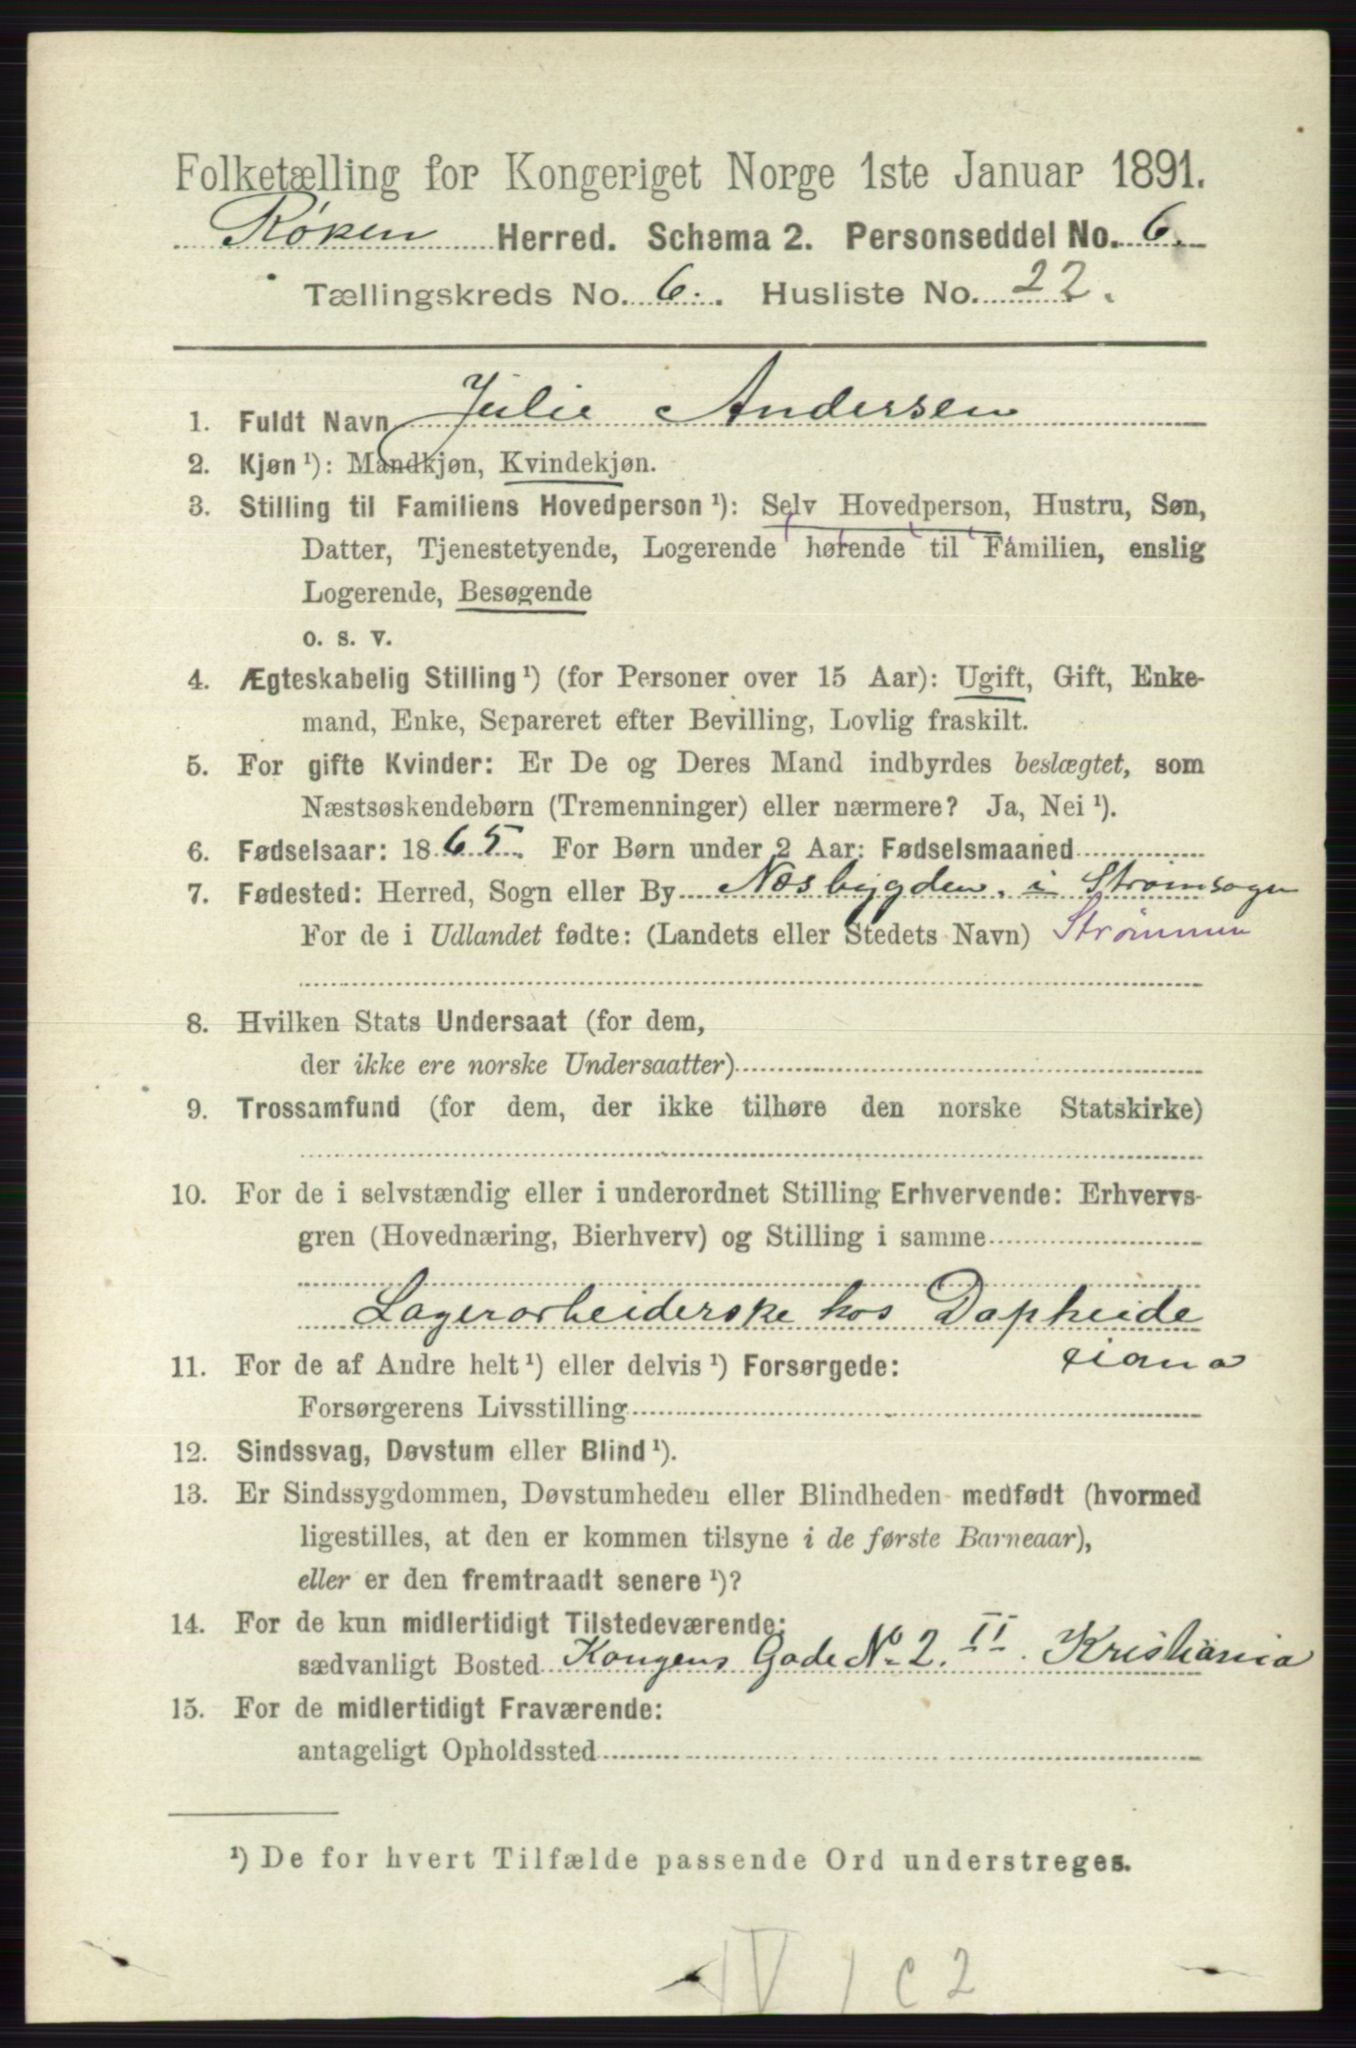 Folketælling for Kongeriget Norge 1ste Januar 1891.
Røken Herred. Schema 2. Personseddel No. 6.
Tællingskreds No. 6. Husliste No. 22.
1. Fuldt Navn Julie Andersen
2. Kjøn ¹): Mandkjøn, Kvindekjøn.
3. Stilling til Familiens Hovedperson ¹): Selv Hovedperson, Hustru, Søn,
Datter, Tjenestetyende, Logerende hørende til Familien, enslig
Logerende, Besøgende
o. s. v.
4. Ægteskabelig Stilling ¹) (for Personer over 15 Aar): Ugift, Gift, Enke-
mand, Enke, Separeret efter Bevilling, Lovlig fraskilt.
5. For gifte Kvinder: Er De og Deres Mand indbyrdes beslægtet, som
Næstsøskendebørn (Tremenninger) eller nærmere? Ja, Nei ¹).
6. Fødselsaar: 1865. For Børn under 2 Aar: Fødselsmaaned
7. Fødested: Herred, Sogn eller By Næsbygden. i Strømsogn
For de i Udlandet fødte: (Landets eller Stedets Navn) Strømmen
8. Hvilken Stats Undersaat (for dem,
der ikke ere norske Undersaatter)
9. Trossamfund (for dem, der ikke tilhøre den norske Statskirke)
10. For de i selvstændig eller i underordnet Stilling Erhvervende: Erhvervs-
gren (Hovednæring, Bierhverv) og Stilling i samme
Lagerarbeiderske hos
11. For de af Andre helt ¹) eller delvis ¹) Forsørgede:
Forsørgerens Livsstilling
12. Sindssvag, Døvstum eller Blind ¹).
13. Er Sindssygdommen, Døvstumheden eller Blindheden medfødt (hvormed
ligestilles, at den er kommen tilsyne i de første Barneaar),
eller er den fremtraadt senere ¹)?
14. For de kun midlertidigt Tilstedeværende:
sædvanligt Bosted Kongens Gade No 2. II. Kristiania
15. For de midlertidigt Fraværende:
antageligt Opholdssted
¹) De for hvert Tilfælde passende Ord understreges.
IV 1 c 2